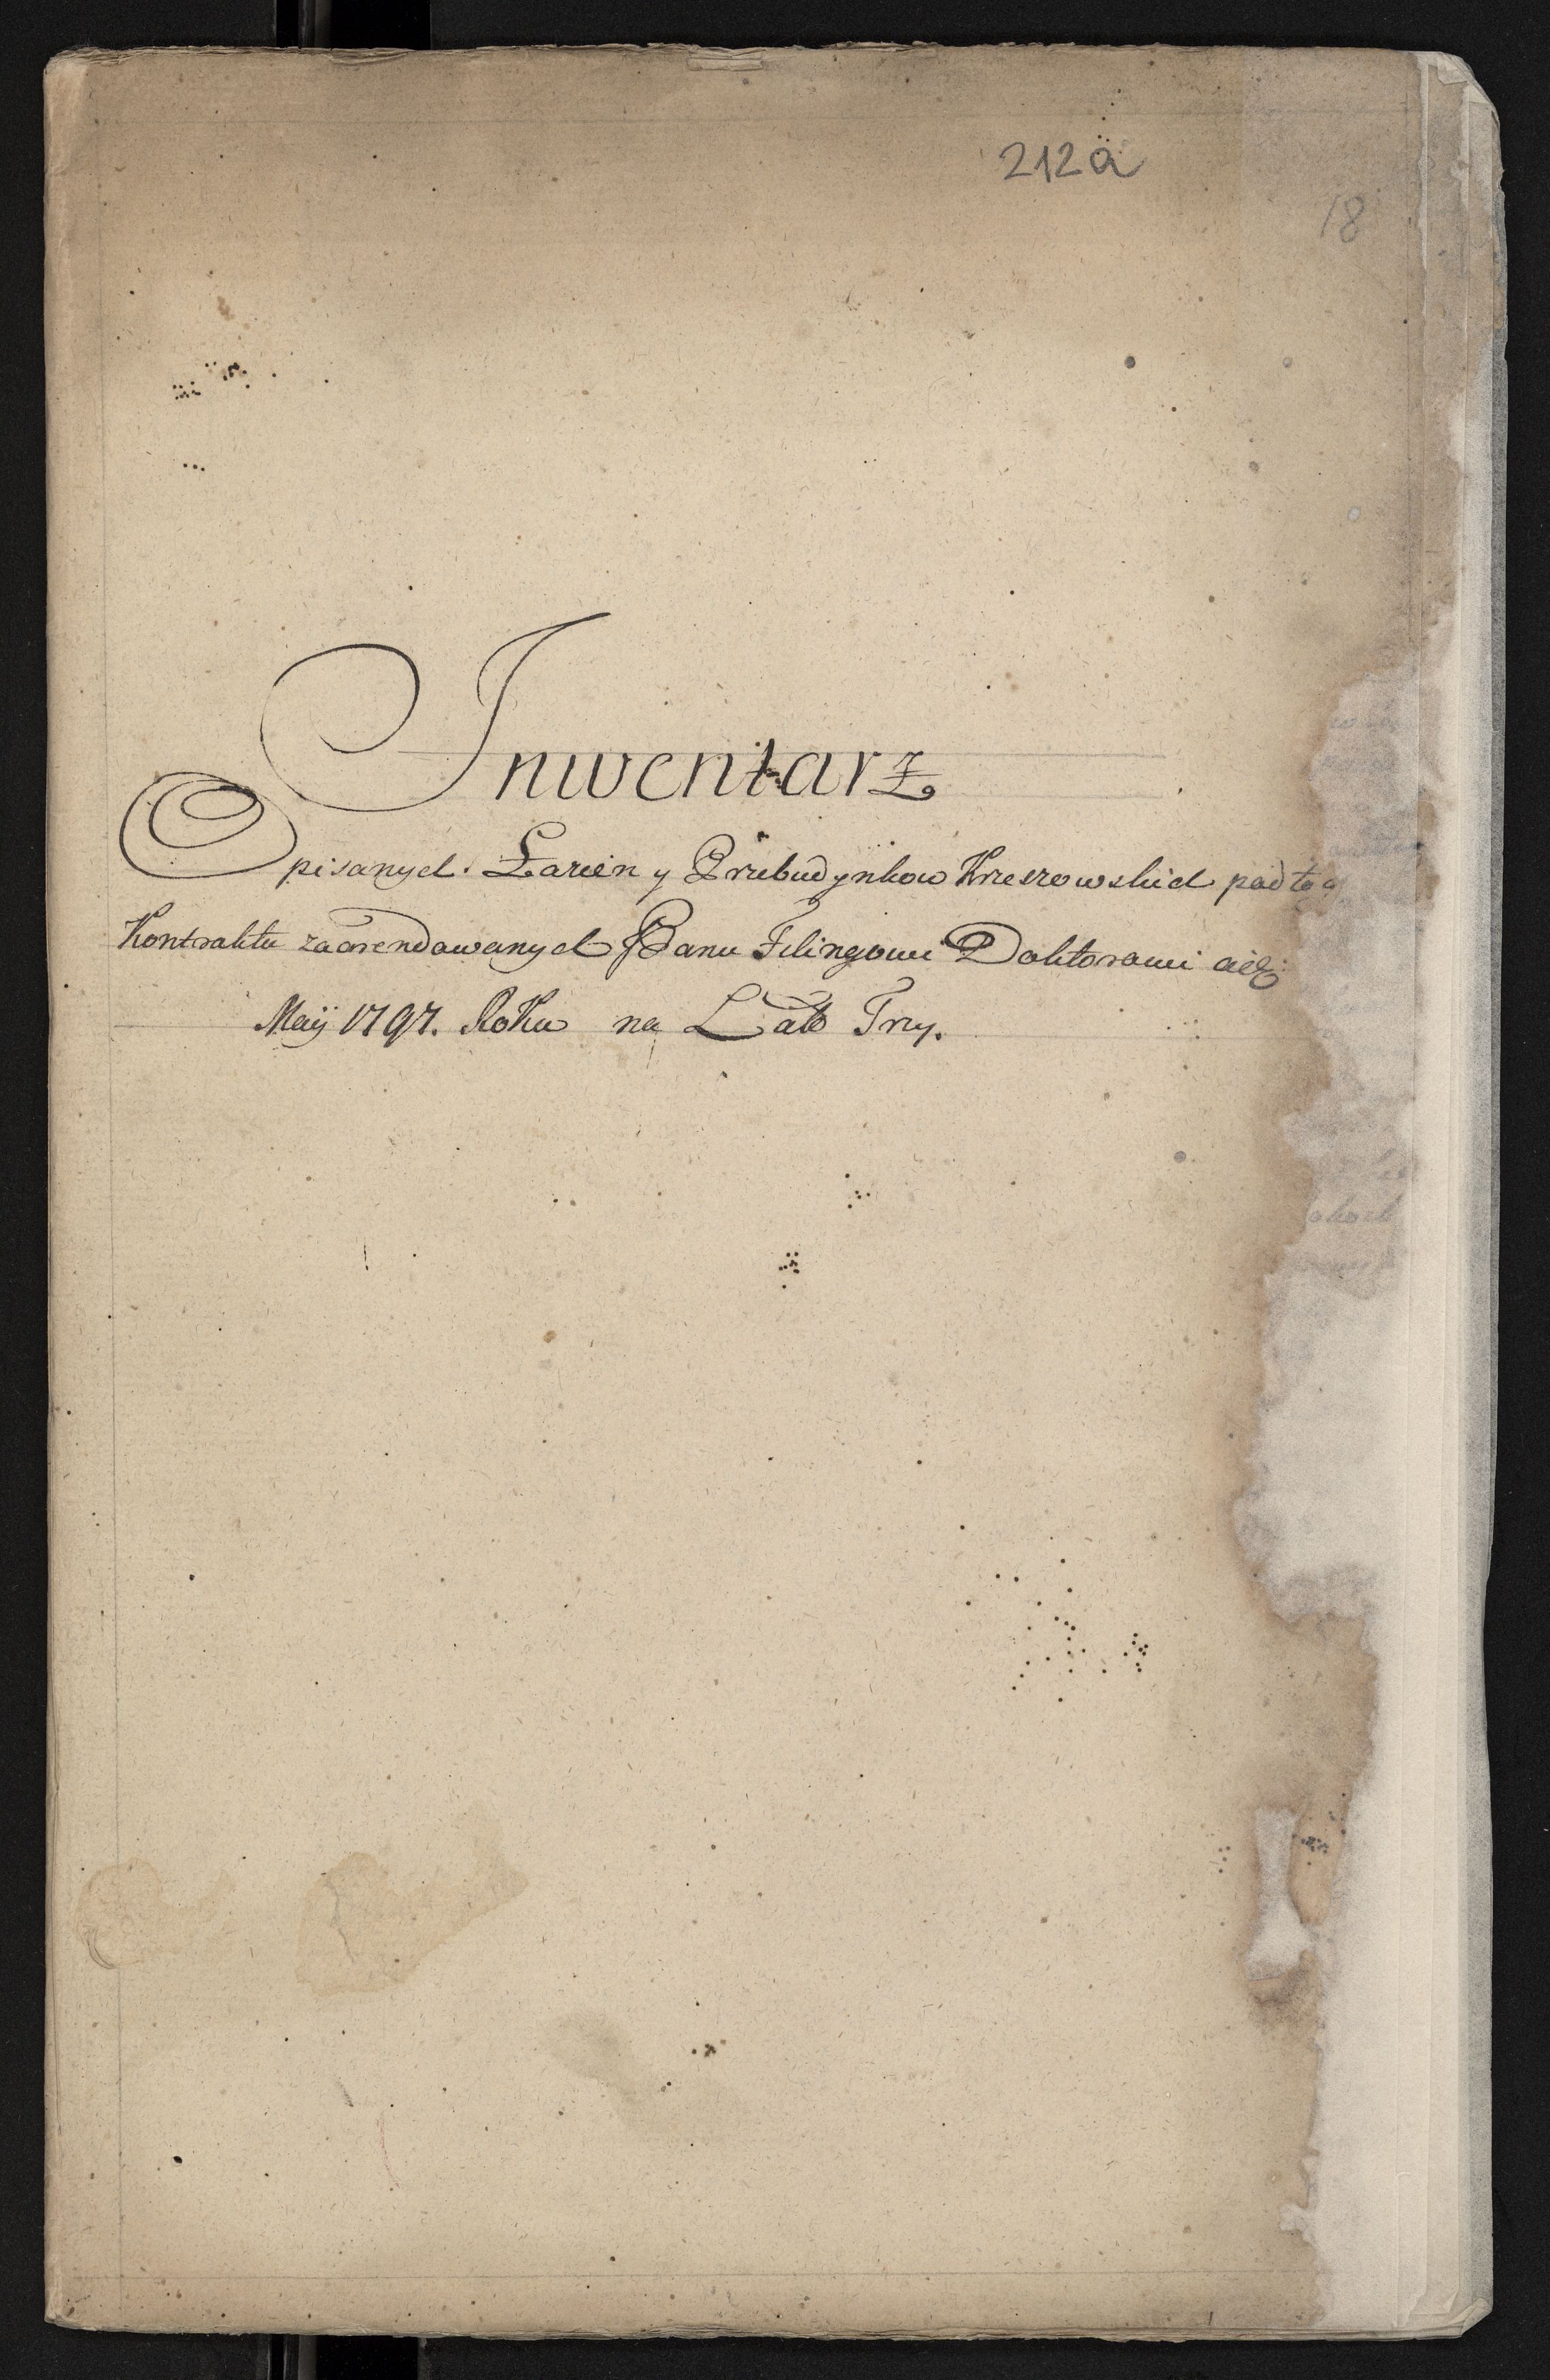 212a
18
Inwentarz
Opisanych Łazien y Przybudynkow Krzeszowskich podług
Kontraktu zaarendowanych Panu Filingowi Doktorowi
Maij 1797. Roku na Lat Trzy.